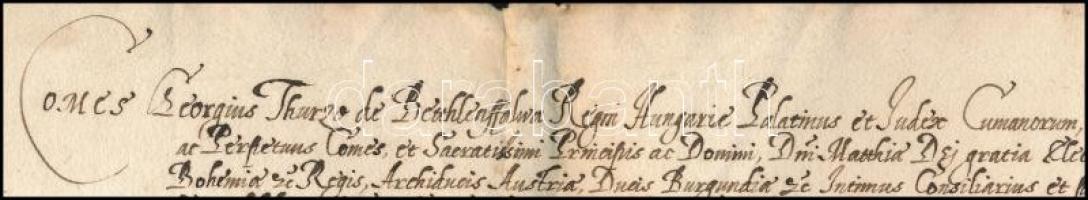 Comes Georgius Thurzo de Bethlenffalwa Regni Hungarie Palatinus et Iudex Cumanorum,
ac Perpetuus Comes, et Sacratissimi Principis ac Domini, Dni Matthia Dei gratia Elec
Bohemia &c Regis, Archiducis Austria, Ducis Burgundia &c Intimus Consiliarius et